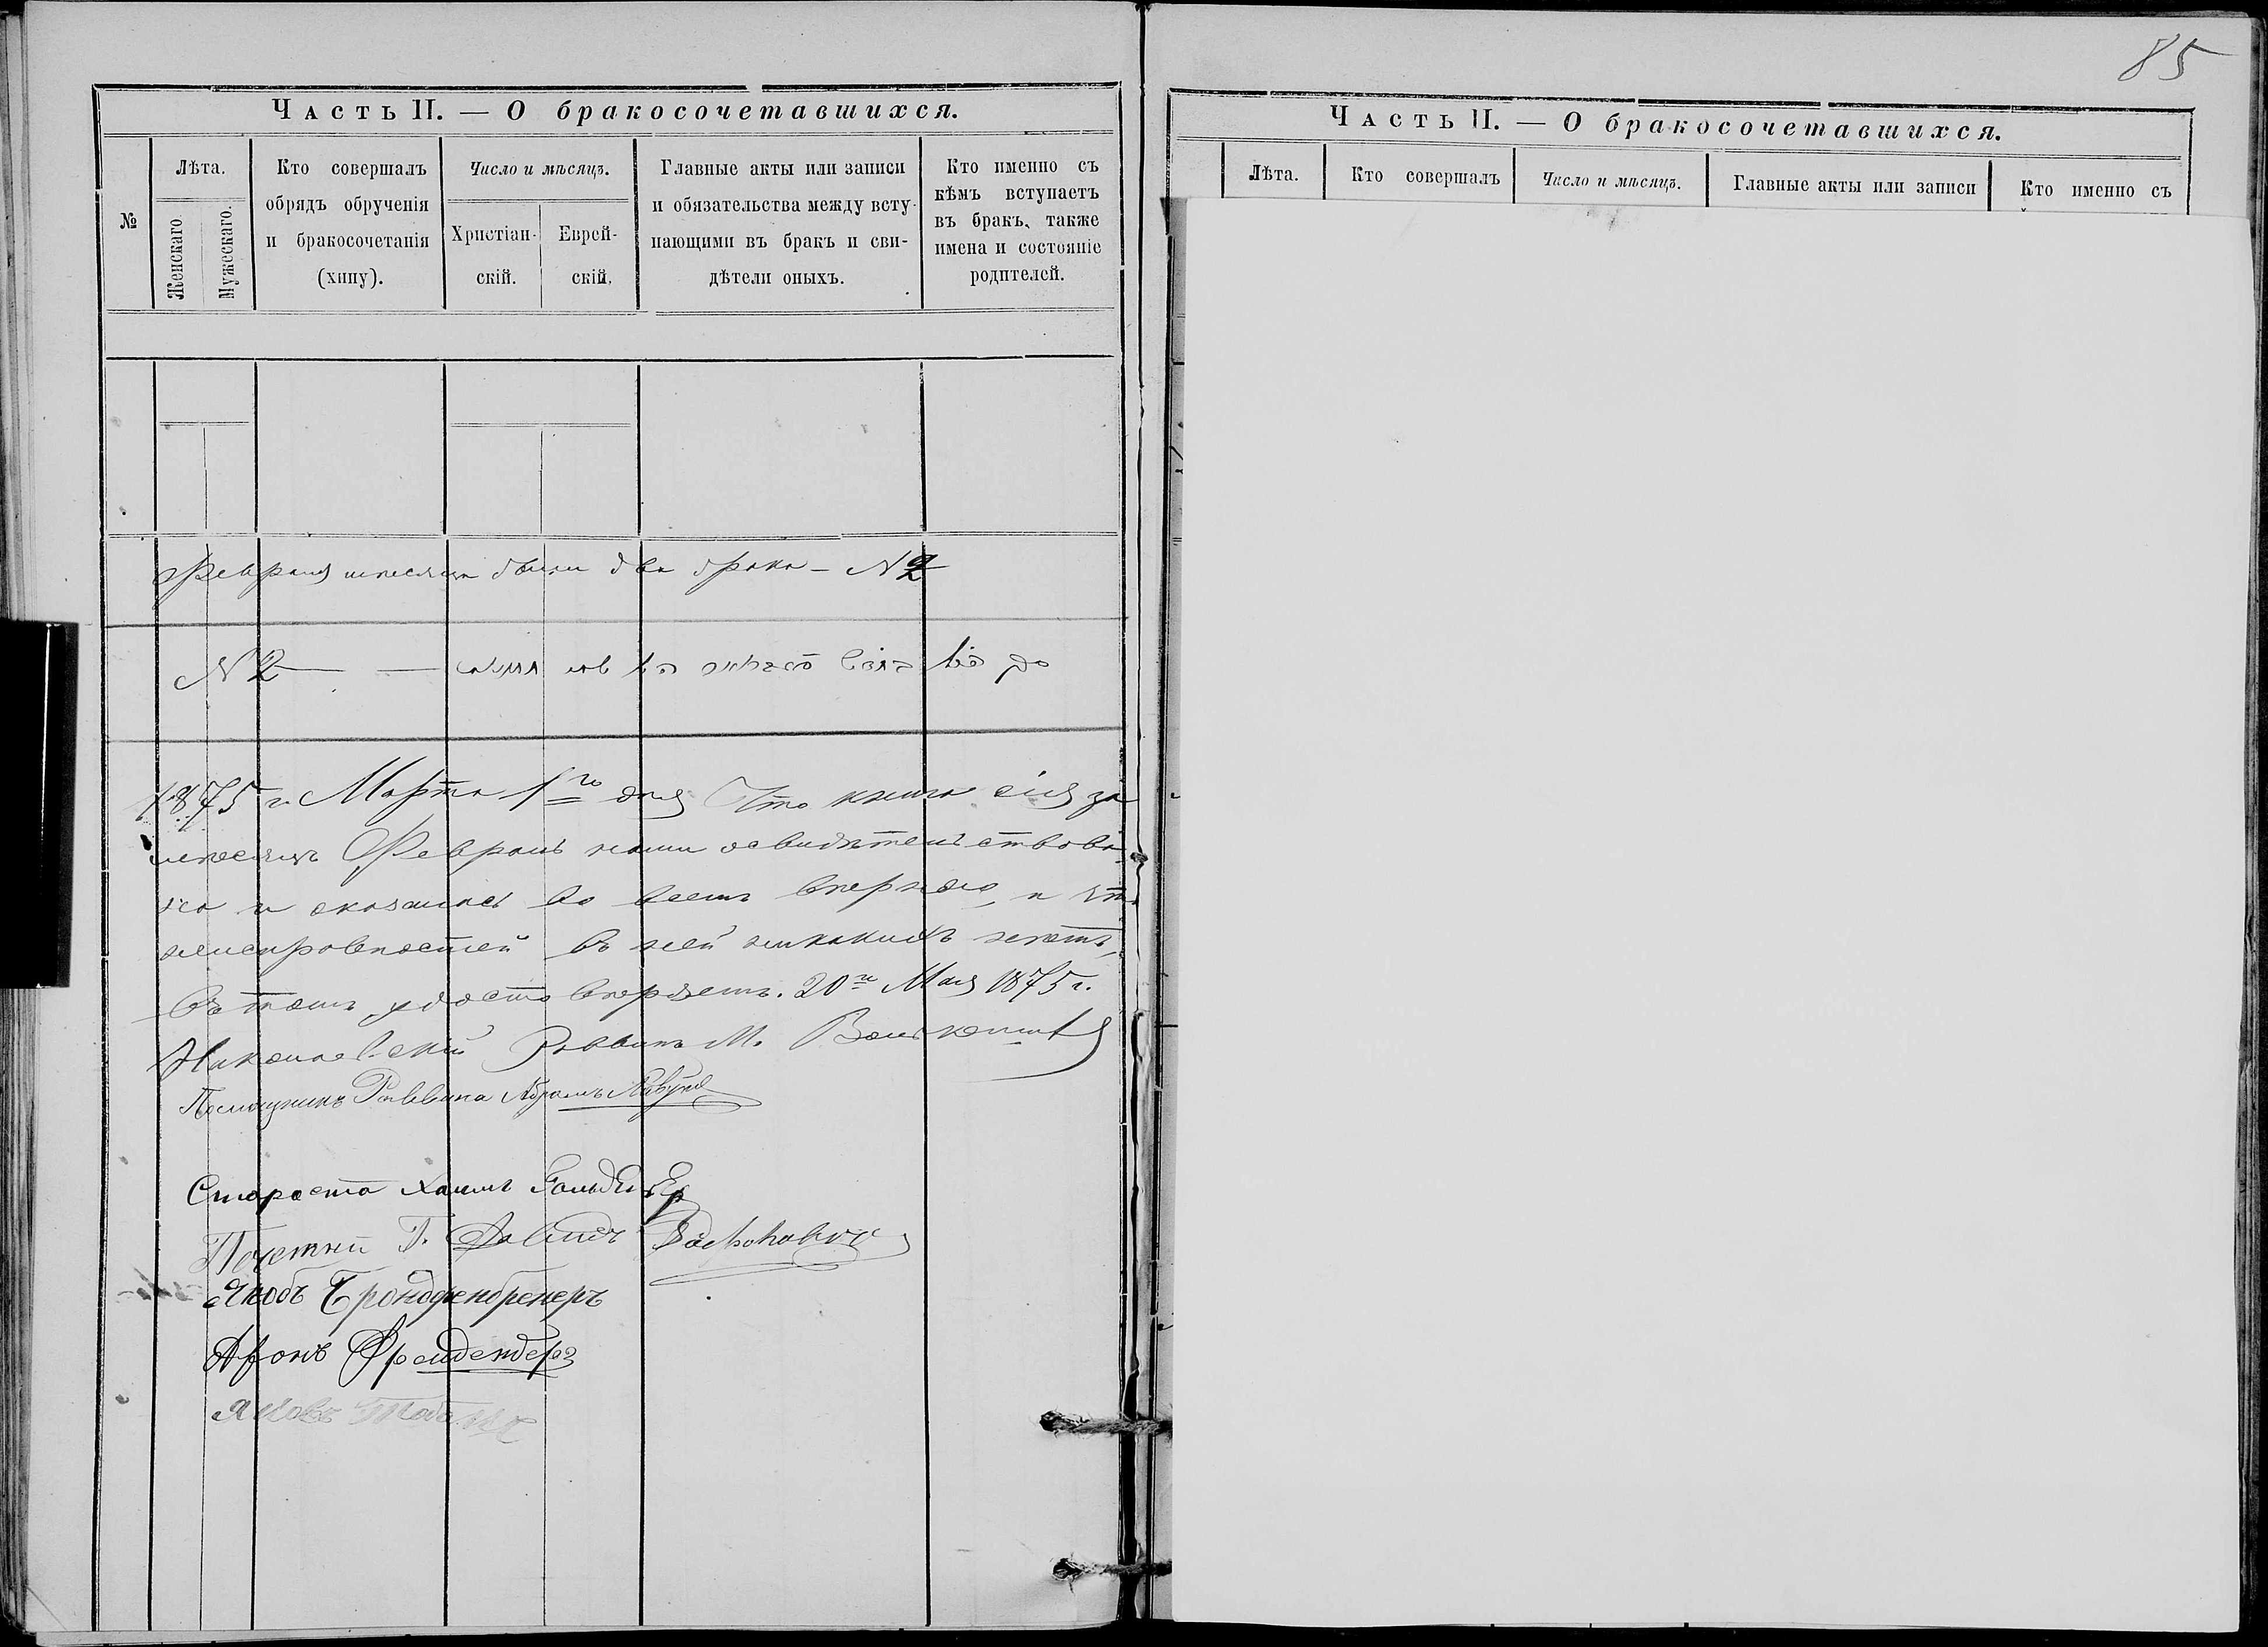 85
Часть II. — О бракосочетавшихся.
№
Лѣта.
Женскаго.
Мужескаго.
Кто совершалъ
обрядъ обрученія
и бракосочетанія
(хипу).
Число и мѣсяцъ.
Христіан-
скій.
Еврей-
скій.
Главные акты или записи
и обязательства между всту-
пающими въ бракъ и сви-
дѣтели оныхъ.
Кто именно съ
кѣмъ вступаетъ
въ бракъ, также
имена и состояніе
родителей.
Февраля мѣсяца были два брака — N 2
N 2
1875 г. Марта 1го дня Что книга сія за
мѣсяцъ Февраль нами освидѣтельствова-
на и оказалась во всемъ вѣрною, и что
неисправностей въ ней никакихъ нѣтъ,
въ томъ удостовѣряемъ. 20го Мая 1875 г.
Николаевскій Раввинъ М.
Помощникъ Раввина Абрамъ
Староста Хаимъ
Почетный Г. Давидъ Рафаловичъ
Якобъ
Аронъ Фрейденберг
Яковъ
Часть II. — О бракосочетавшихся.
Лѣта.
Кто совершалъ
Число и мѣсяцъ.
Главные акты или записи
Кто именно съ